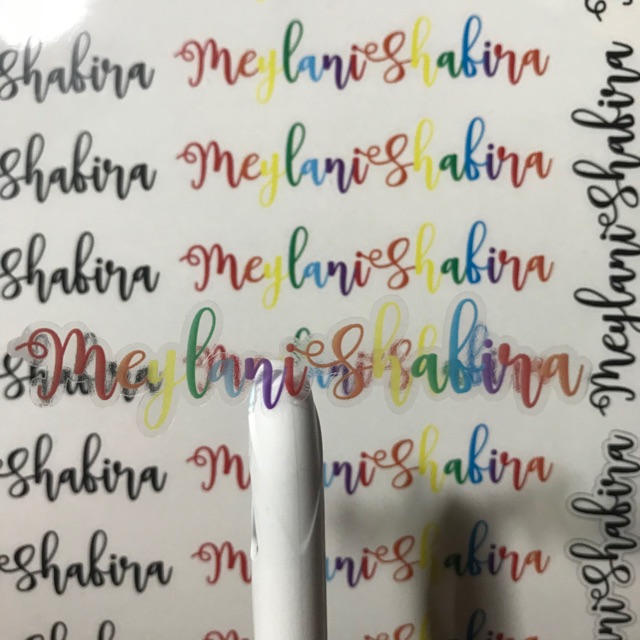 Shabira MeylaniShabira
Shabira MeylaniShabira
Shabira MeylaniShabira
MeylaniShabira
Shabira M aniShabira
Shabira M aniShabira
MeylaniShabira
Shabira